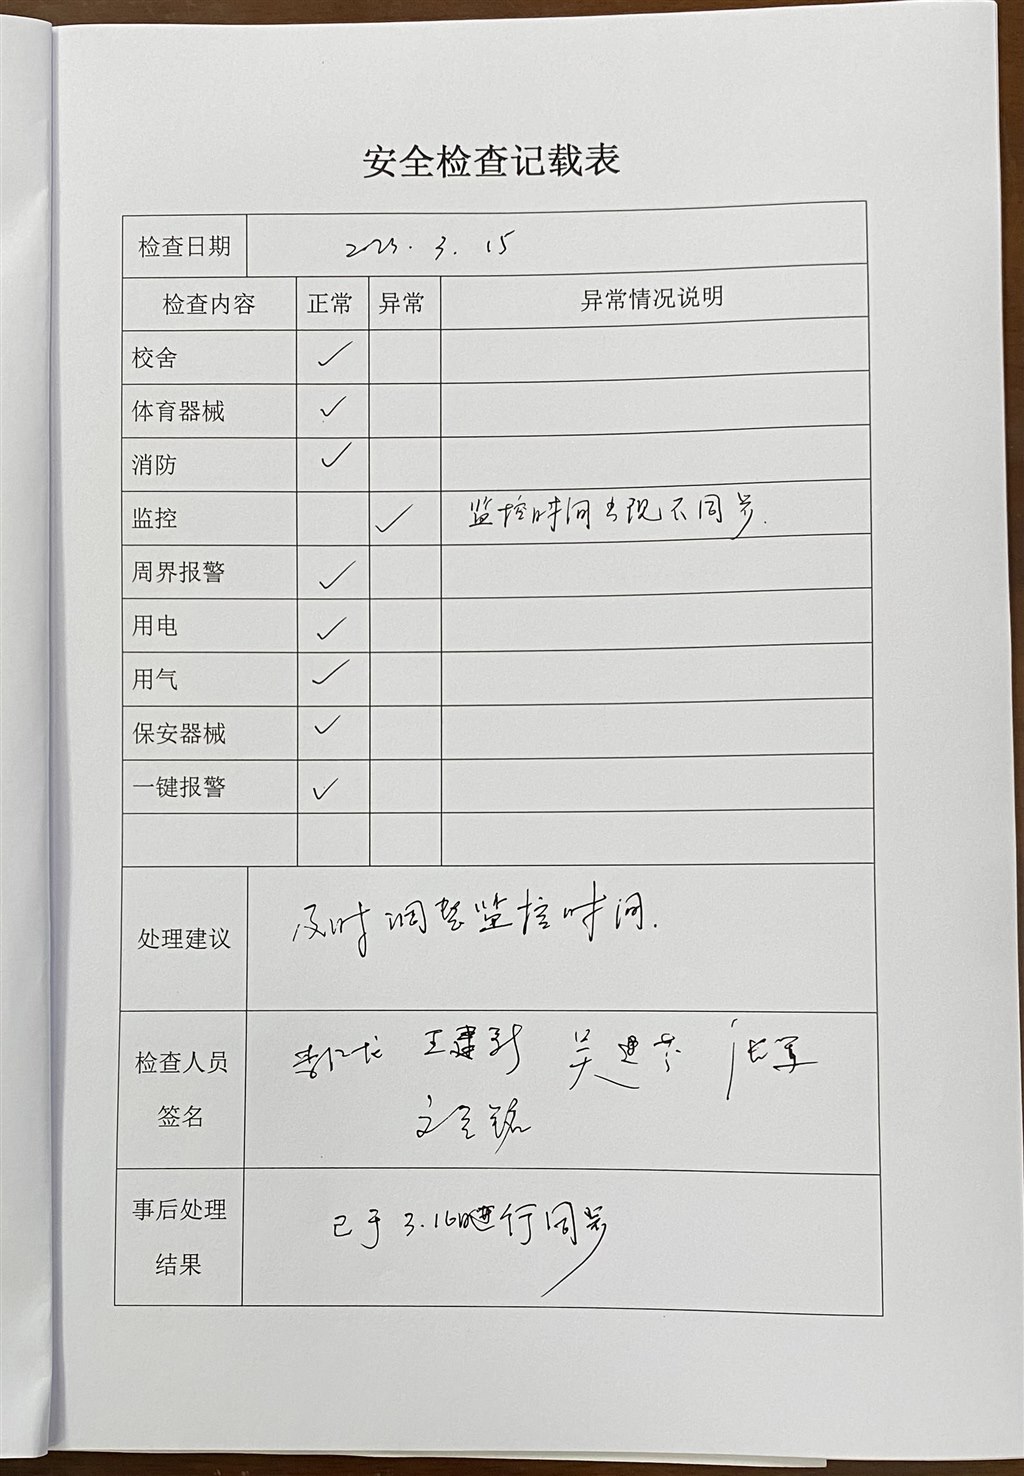 安全检查记载表
检查日期 2023.3.15
检查内容 正常 异常 异常情况说明
校舍 ✓
体育器械 ✓
消防 ✓
监控 ✓ 监控时间出现不同步.
周界报警 ✓
用电 ✓
用气 ✓
保安器械 ✓
一键报警 ✓
处理建议 及时调整监控时间.
检查人员
签名
李仁龙 王建新
事后处理
结果
已于3.16日进行同步